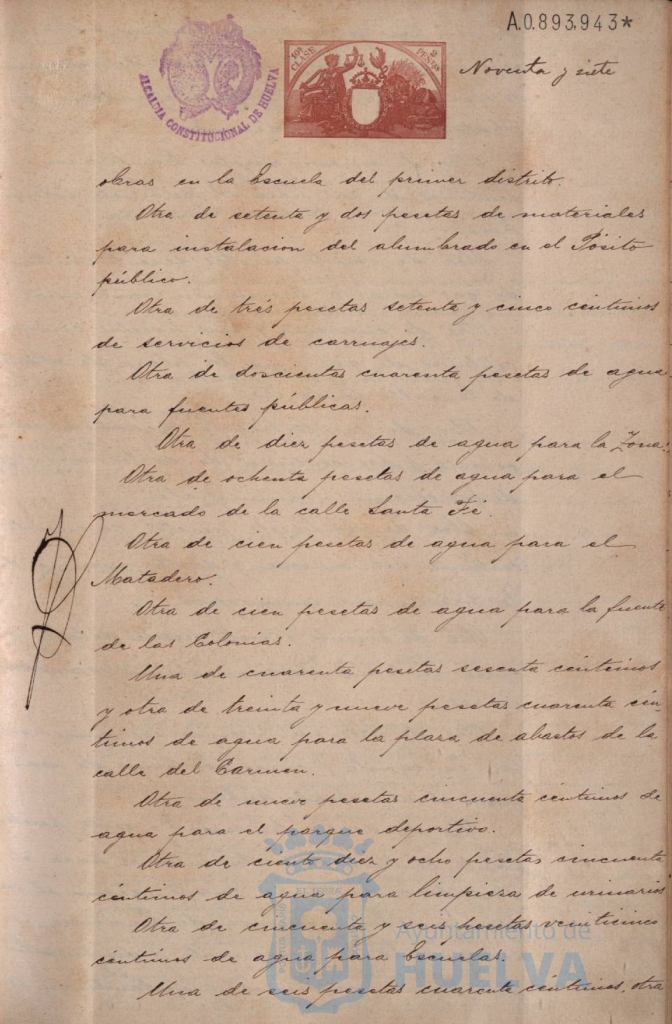 A.0.893,943*
ALCALDIA CONSTITUCIONAL DE HUELVA
10ª CLASE 2 PESETAS
Noventa y siete
obras en la Escuela del primer distrito.
Otra de setenta y dos pesetas de materiales
para instalacion del alumbrado en el Pósito
público.
Otra de trés pesetas setenta y cinco céntimos
de servicios de carruajes.
Otra de doscientas cuarenta pesetas de agua
para fuentes públicas.
Otra de diez pesetas de agua para la Zona.
Otra de ochenta pesetas de agua para el
mercado de la calle Santa Fé.
Otra de cien pesetas de agua para el
Matadero.
Otra de cien pesetas de agua para la fuente
de las Colonias.
Una de cuarenta pesetas sesenta céntimos
y otra de treinta y nueve pesetas cuarenta cén
timos de agua para la plaza de abastos de la
calle del Carmen.
Otra de nueve pesetas cincuenta céntimos de
agua para el parque deportivo.
Otra de ciento diez y ocho pesetas cincuenta
céntimos de agua para limpieza de urinarios
Otra de cincuenta y seis pesetas veinticinco
céntimos de agua para Escuelas.
Una de seis pesetas cuarenta céntimos, otra
Ayuntamiento de
HUELVA